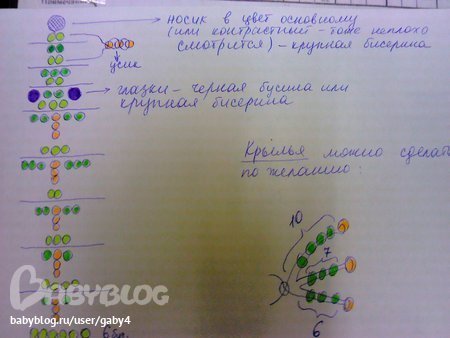 носик в цвет основному
(или контрастный - тоже неплохо
смотрится) - крупная бисерина
усик
глазки - черная бусина или
крупная бисерина
Крылья можно сделать
по желанию:
10
7
6
BABYBLOG
babyblog.ru/user/gaby4
6бр.